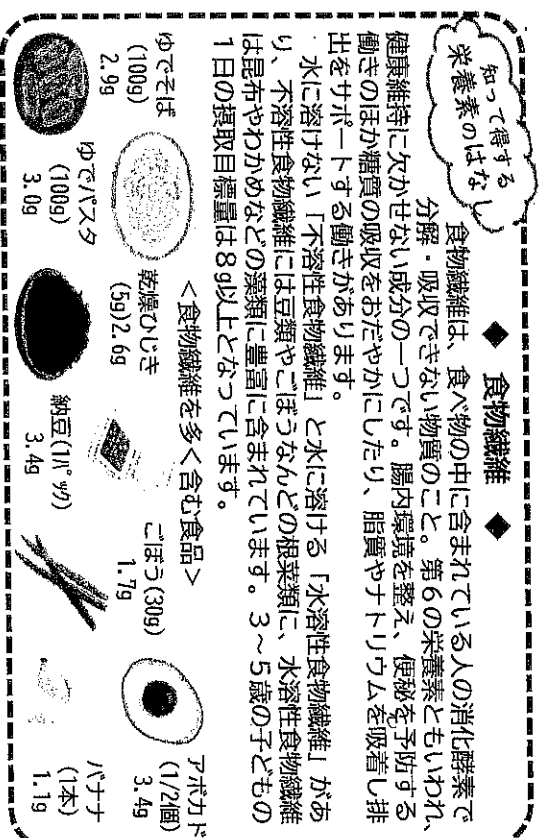 知って得する
栄養素のはなし
◆ 食物繊維 ◆
食物繊維は、食べ物の中に含まれている人の消化酵素で
分解・吸収できない物質のこと。第6の栄養素ともいわれ、
健康維持に欠かせない成分の一つです。腸内環境を整え、便秘を予防する
働きのほか糖質の吸収をおだやかにしたり、脂質やナトリウムを吸着し排
出をサポートする働きがあります。
水に溶けない「不溶性食物繊維」と水に溶ける「水溶性食物繊維」があ
り、不溶性食物繊維には豆類やごぼうなんどの根菜類に、水溶性食物繊維
は昆布やわかめなどの藻類に豊富に含まれています。3～5歳の子どもの
1日の摂取目標量は8g以上となっています。
＜食物繊維を多く含む食品＞
ゆでそば
(100g)
2.9g
乾燥ひじき
(5g)2.6g
ごぼう(30g)
1.7g
アボカド
(1/2個)
3.4g
ゆでパスタ
(100g)
3.0g
納豆(1パック)
3.4g
バナナ
(1本)
1.1g